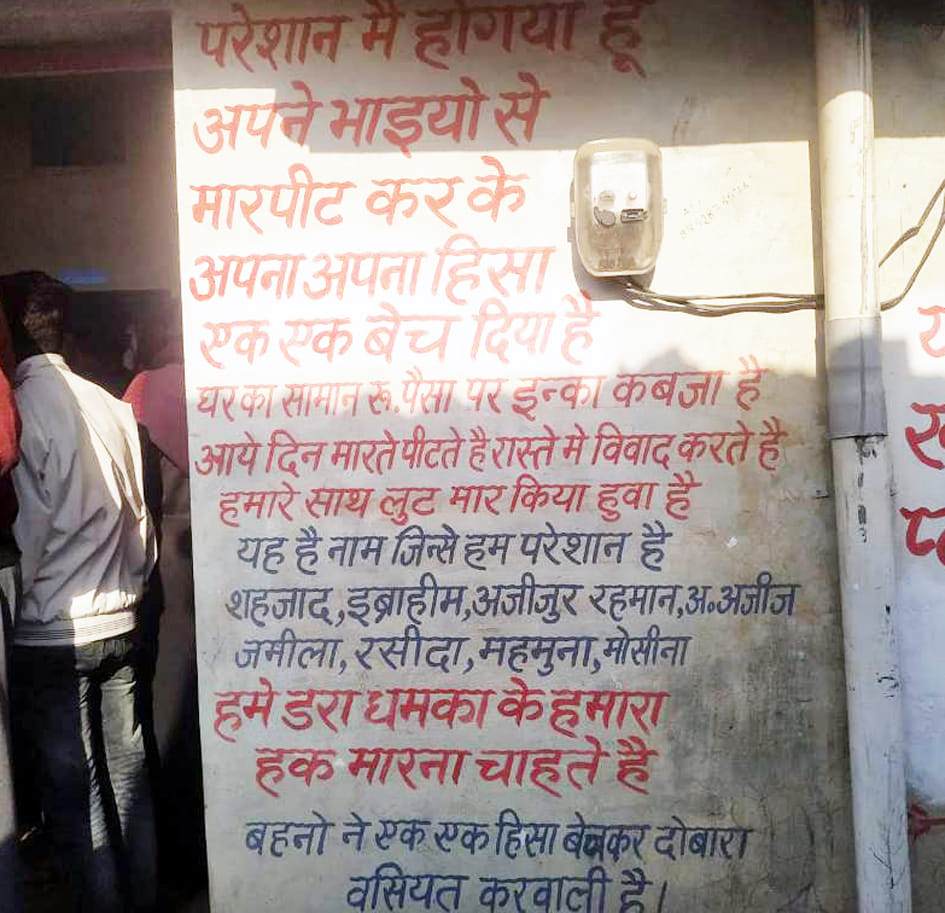 परेशान मै होगया हूँ
अपने भाइयो से
मारपीट कर के
अपना अपना हिसा
एक एक बेच दिया है
घर का सामान रू.पैसा पर इन्का कबजा है
आये दिन मारते पीटते है रास्ते मे विवाद करते है
हमारे साथ लुट मार किया हुवा है
यह है नाम जिन्से हम परेशान है
शहजाद,इब्राहीम,अजीजुर रहमान,अ॰अजीज
जमीला, रसीदा,महमुना,मोसीना
हमे डरा धमका के हमारा
हक मारना चाहते है
बहनो ने एक एक हिसा बेचकर दोबारा
वसियत करवाली है।